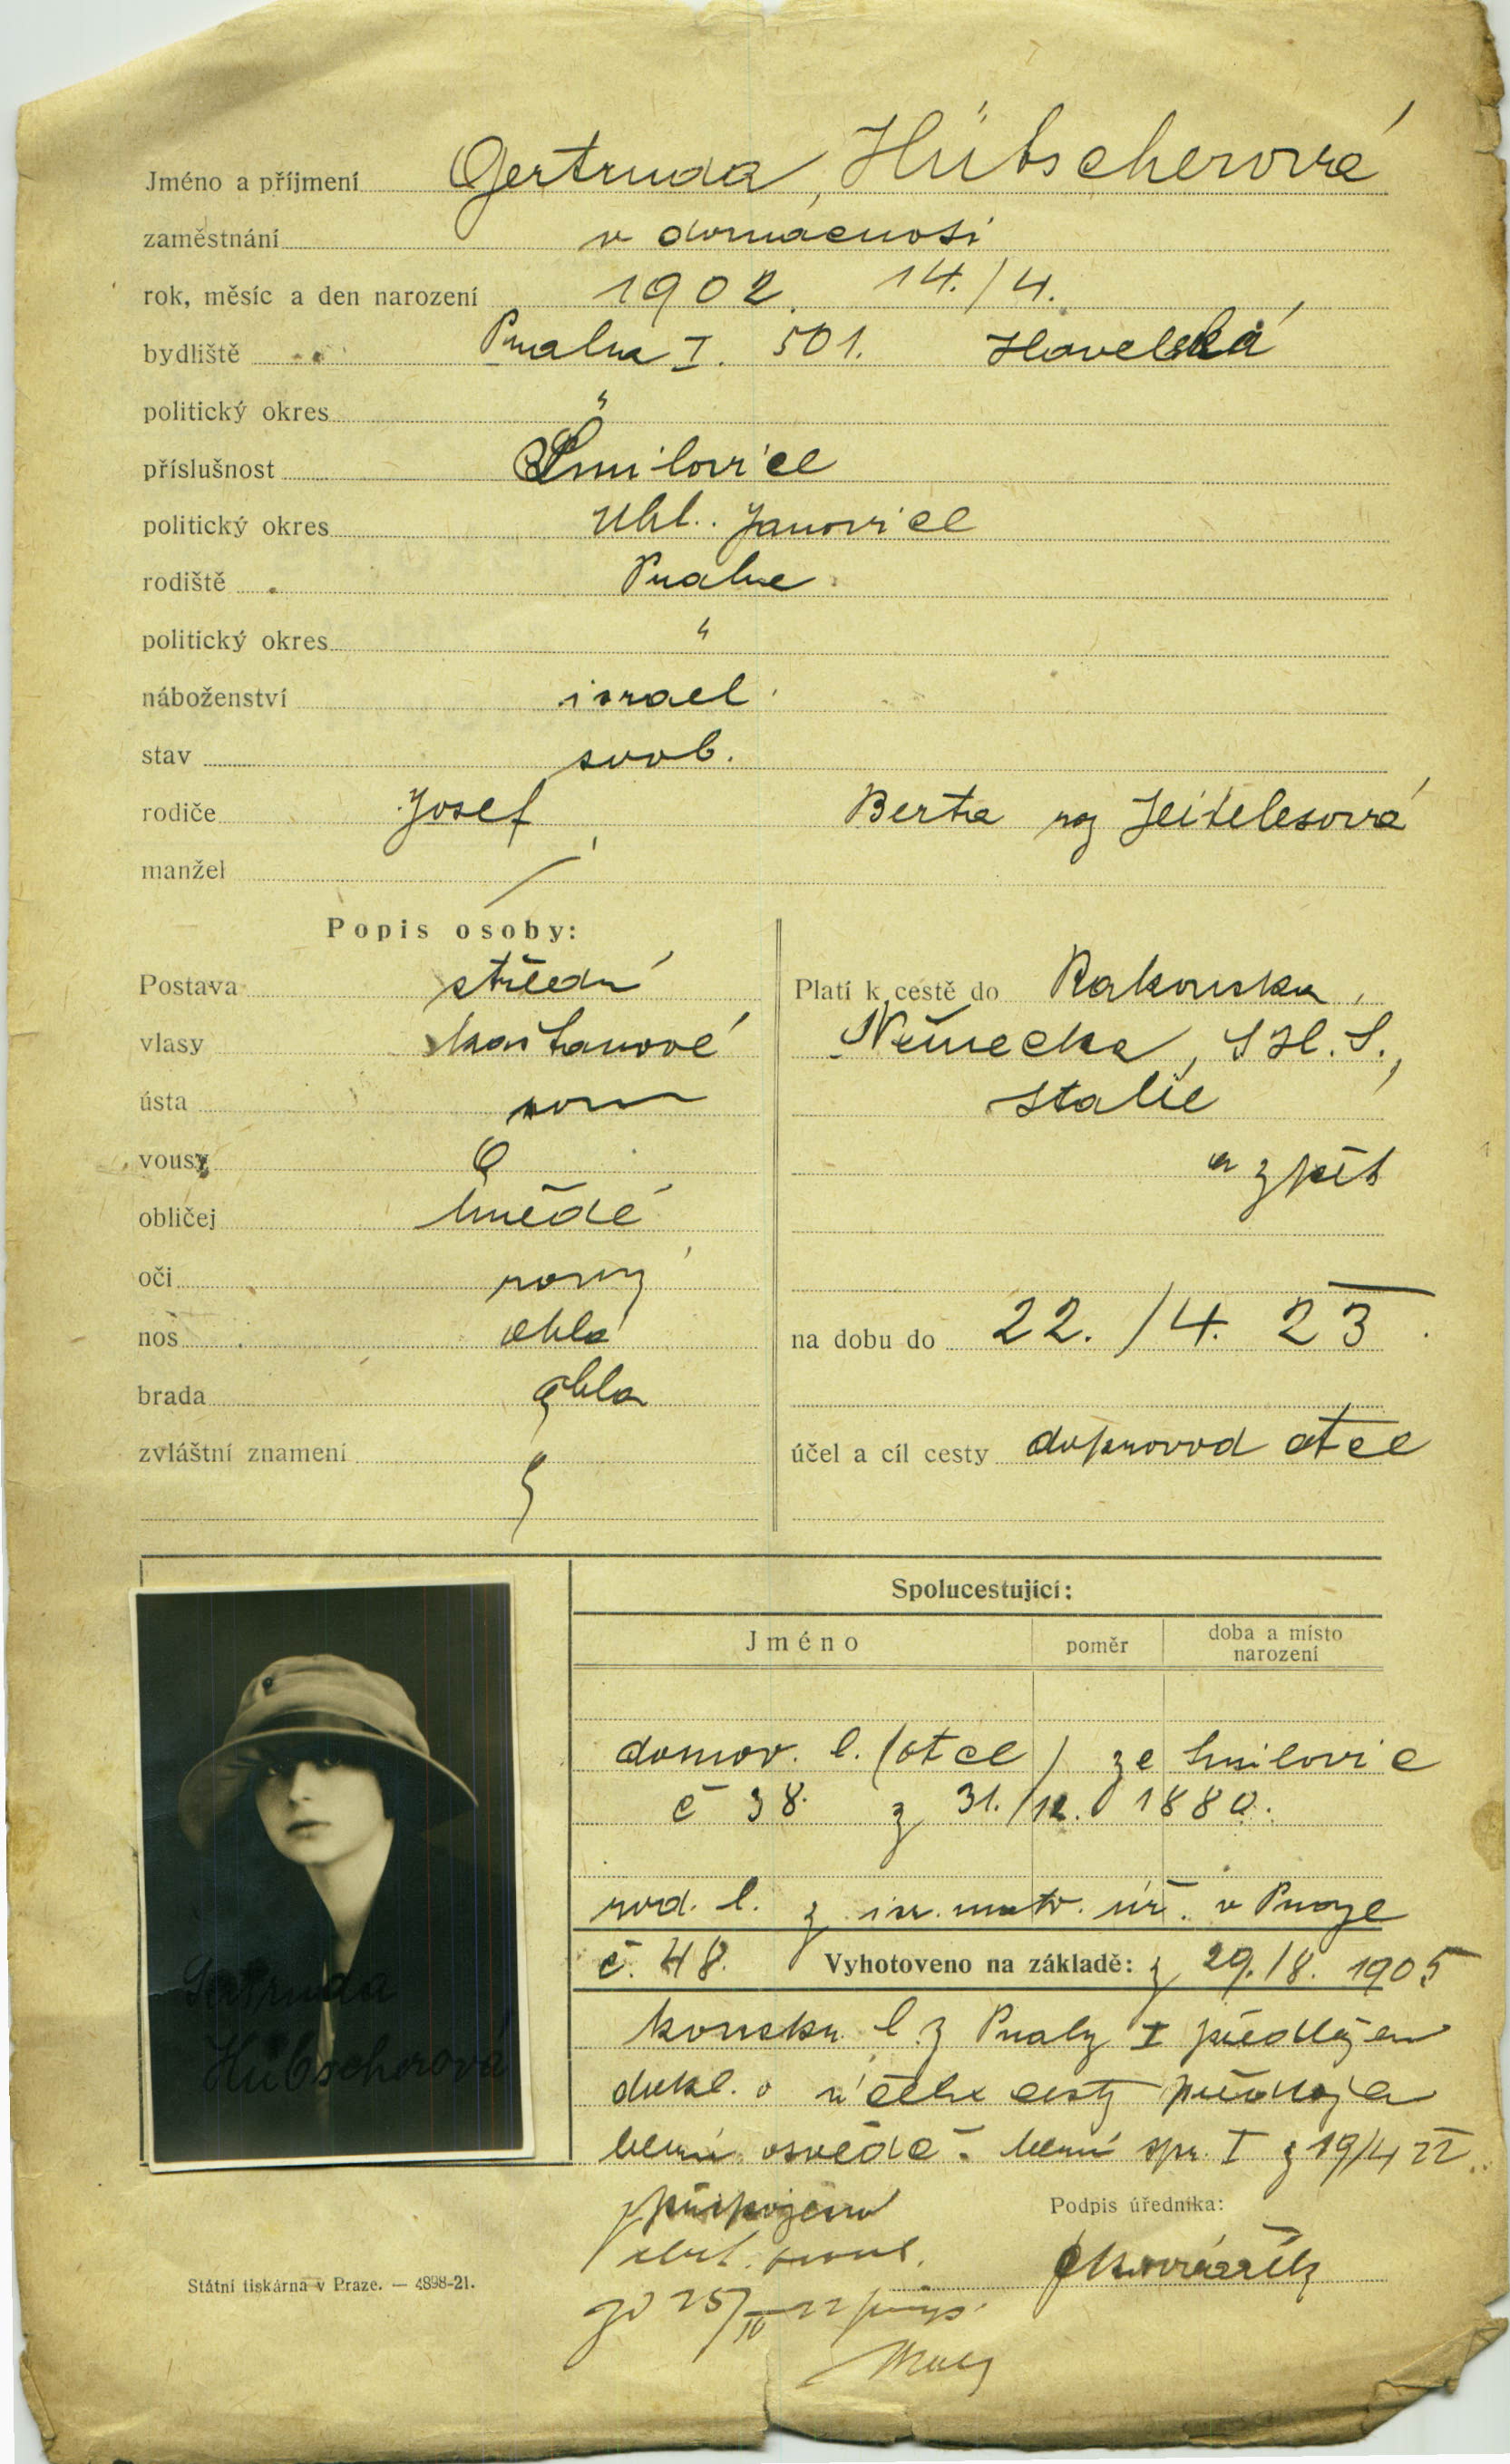 Jméno a příjmení Gertruda Hübscherová
zaměstnání v domácnosti
rok, měsíc a den narození 1902 14./4.
bydliště Praha I. 501. Havelská
politický okres "
příslušnost Smilovice
politický okres Uhl. Janovice
rodiště Praha
politický okres "
náboženství israel.
stav svob.
rodiče Josef, Berta roz Jeitelesová
manžel /
Popis osoby:
Postava střední
Platí k cestě do Rakouska,
vlasy kaštanové
Německa, S H. S.,
ústa norm
Italie
vousy
a zpět
obličej hnědé
oči rovný
nos oblá
na dobu do 22./4. 23.
brada oblá
zvláštní znamení
účel a cíl cesty doprovod otce
Spolucestující:
Jméno poměr doba a místo narození
domov. l. (otce) ze Smilovic
č 38. z 31./12. 1880.
rod. l. z isr. matr. úř. v Praze
č. 48. Vyhotoveno na základě: z 29./8. 1905
konsku. l. z Prahy I předložen
dokl. o účelu cesty předložen
berní osvědč. berní spr. I z 19/4 22.
připojeno
Podpis úředníka:
Gertruda
Hübscherová
Státní tiskárna v Praze. — 4898-21.